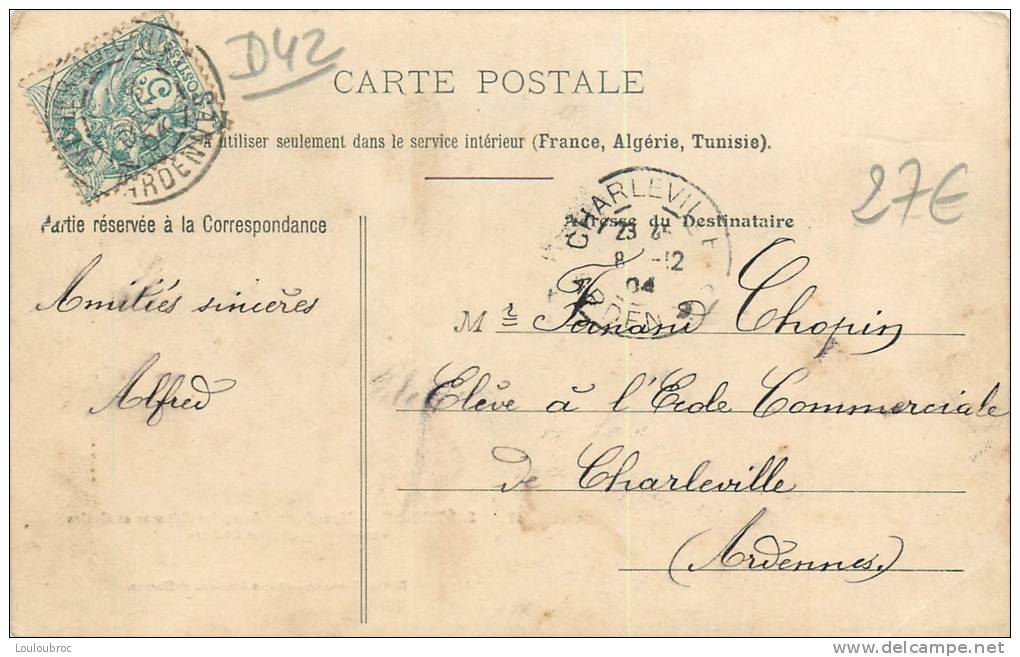 D42
CARTE POSTALE
A utiliser seulement dans le service intérieur (France, Algérie, Tunisie).
27€
Partie réservée à la Correspondance
Adresse du Destinataire
CHARLEVILLE
23
8 -12
04
ARDENNES
5
ARDENNES
Amitiés sincères
Alfred
Mr Fernand Chopin
Elève à l'Ecole Commerciale
de Charleville
(Ardennes.)
Louloubroc
www.delcampe.net